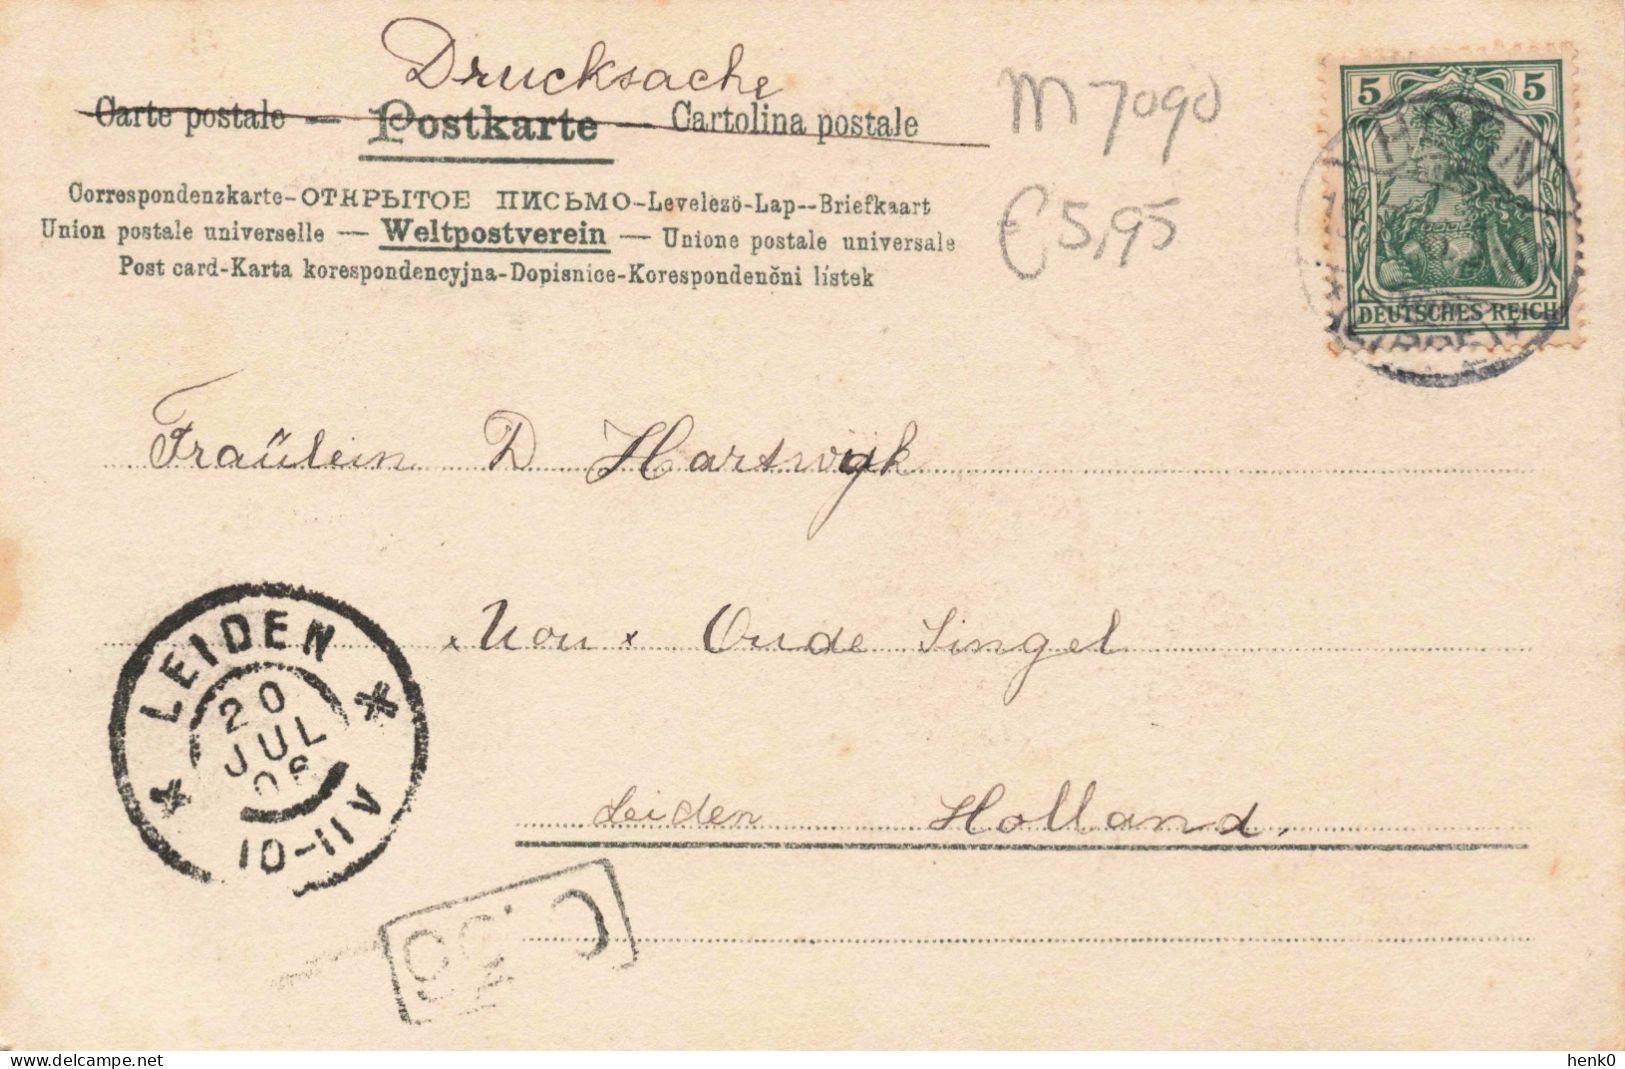 Drucksache
Carte postale — Postkarte — Cartolina postale
Correspondenzkarte-ОТКРЫТОЕ ПИСЬМО-Levelező-Lap--Briefkaart
Union postale universelle — Weltpostverein — Unione postale universale
Post card-Karta korespondencyjna-Dopisnice-Korespondenčni lístek
M 7090
€ 5,95
5 5
DEUTSCHES REICH
Fraülein D Hartwyk
Oude Singel
Leiden Holland.
LEIDEN
20
JUL
06
10-11V
delcampe.net
henk0